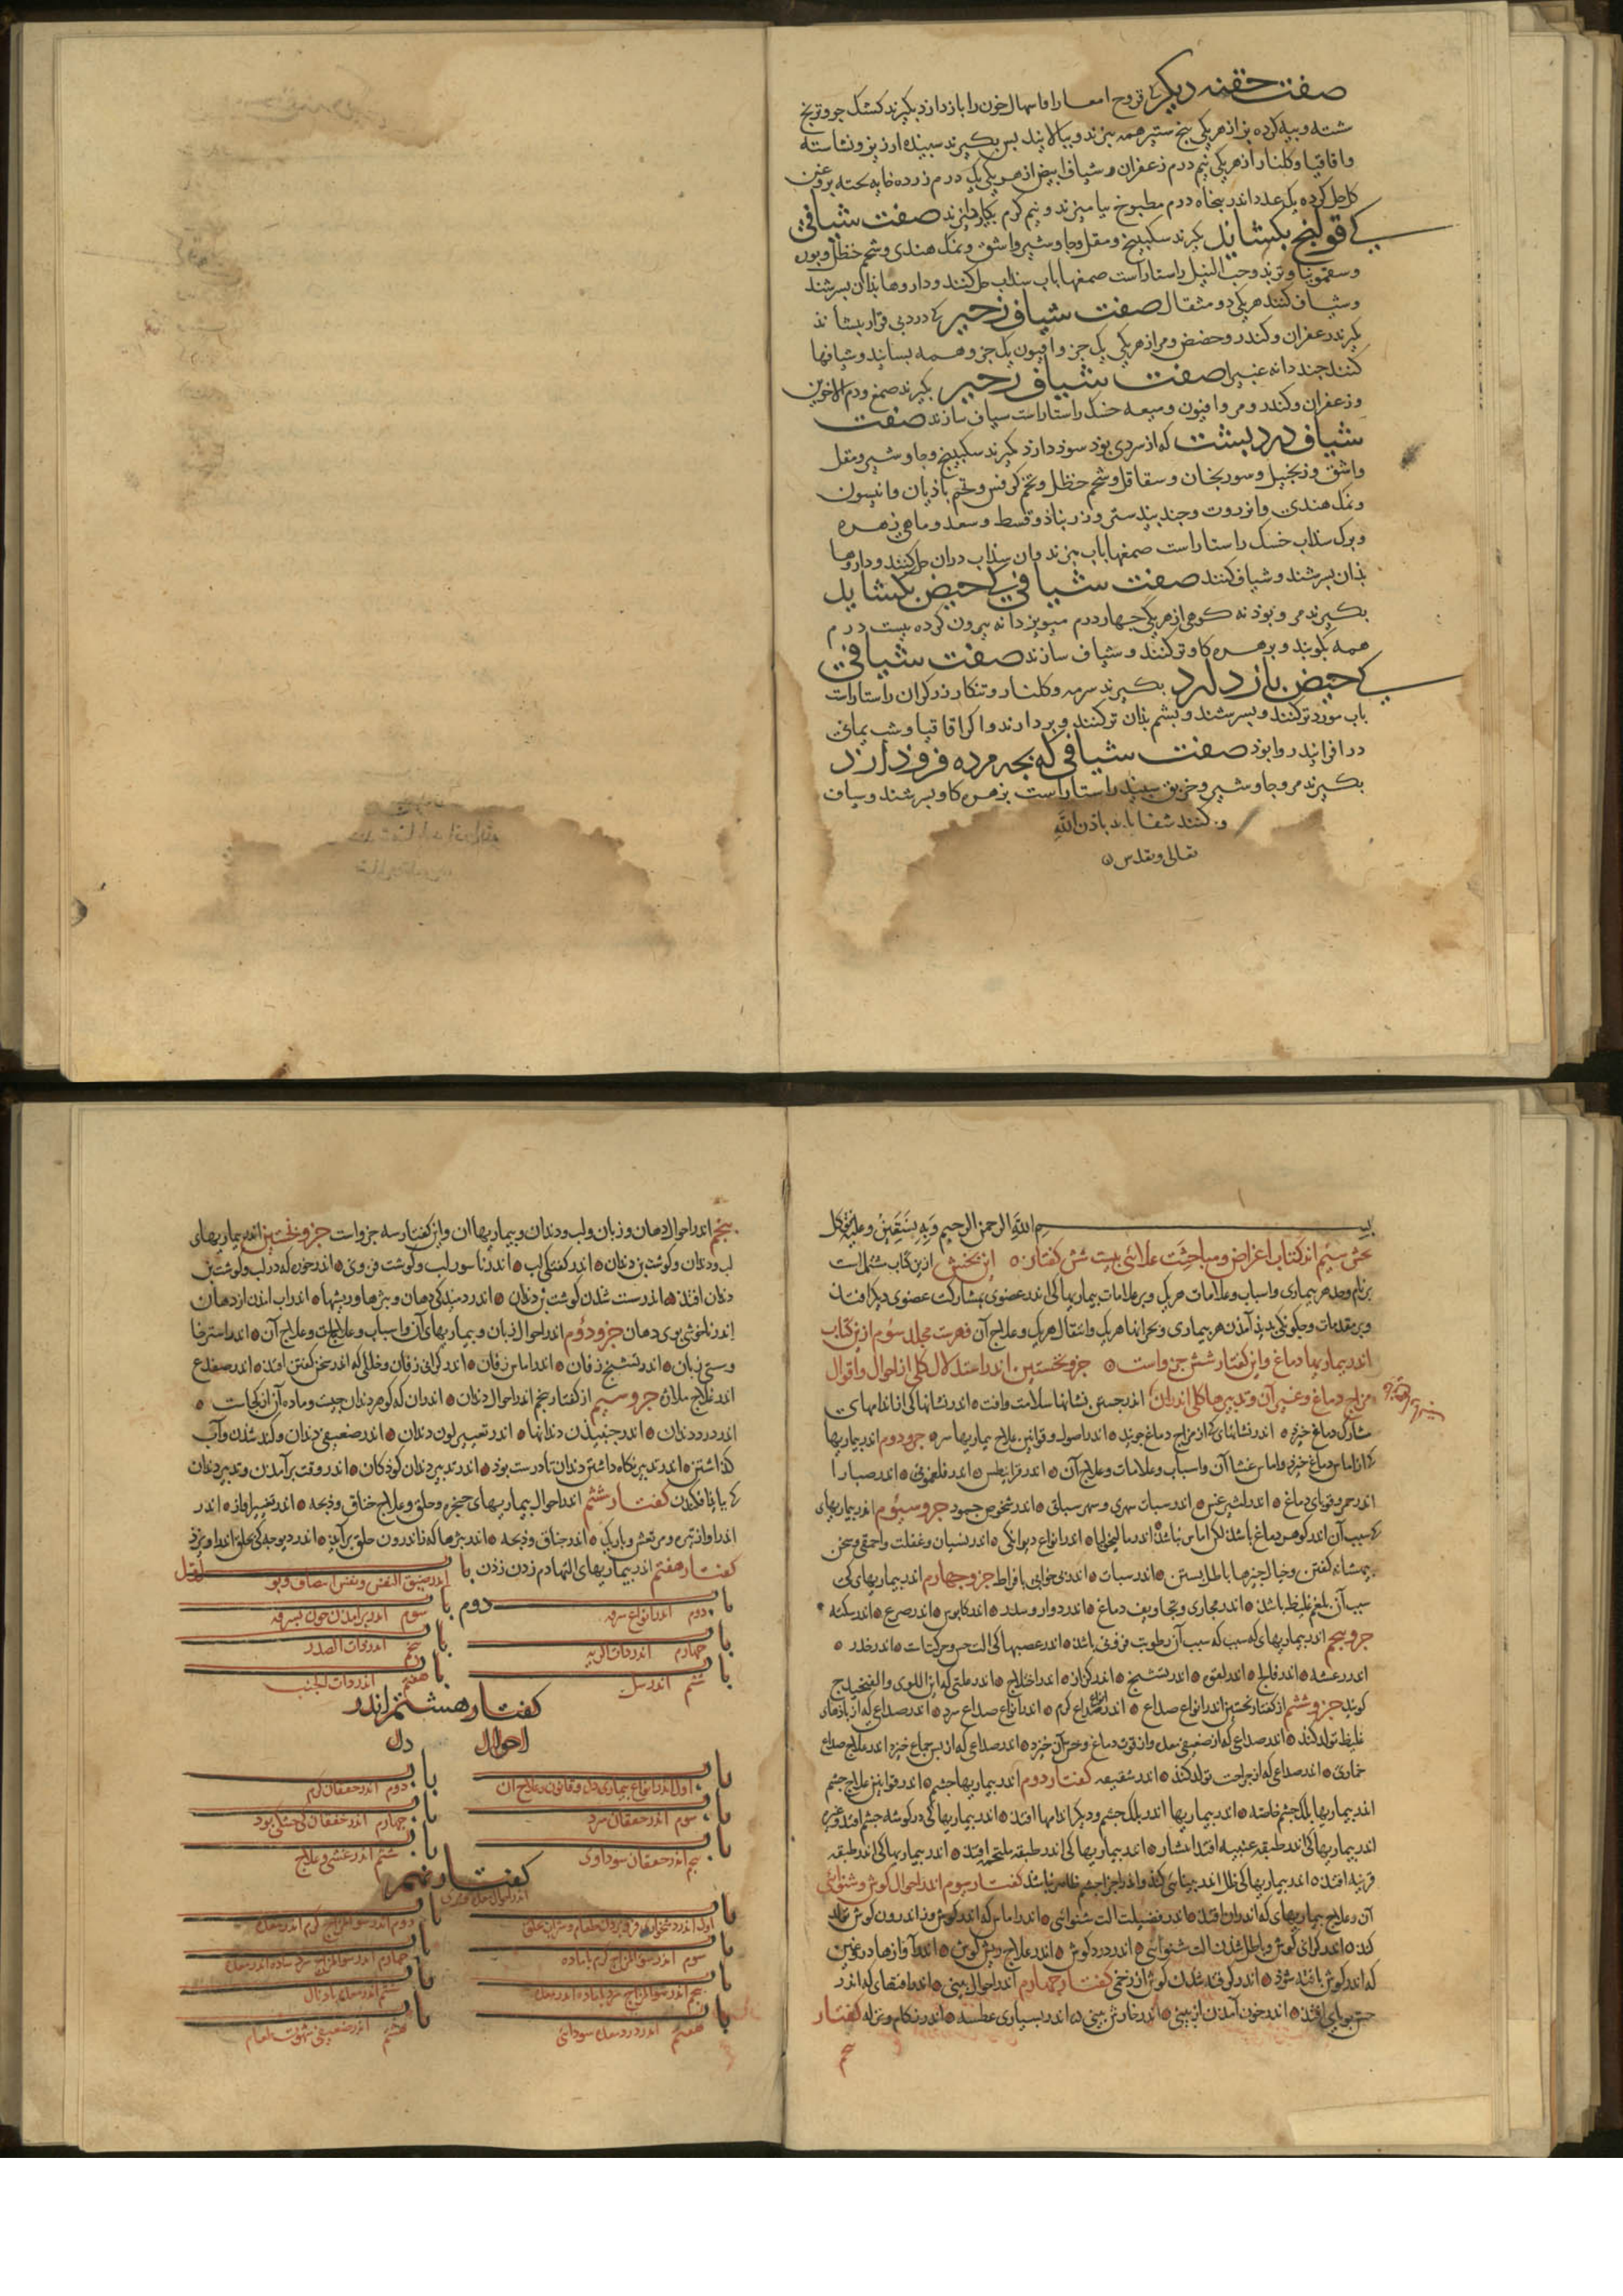 صفت حقنه دیگر کی قروح امعا را و اسهال خون را باز دارد بگیرند کشک جو و برنج
شسته و پیه کرده بز از هریکی پنج ستیر همه بپزند و بپالایند بس بگیرند سبیده ارزیز و نشاسته
و اقاقیا و کلنار از هریکی نیم درم زعفران و شیاف ابیض از هریکی یک درم زرده خایه بخته بروغن
کل حل کرده یک عدد اندر بنجاه درم مطبوخ بیامیزند و نیم کرم بکار دارند صفت شیافی
کی قولنج بکشاید بکیرند سکبینج و مقل و جاوشیر و اشق و نمک هندی و شحم حنظل و بوره
و سقمونیا و تربد و حب النیل راستاراست صمغها باب سداب حل کنند و داروها بذان بسرشند
و شیاف کنند هریکی دو مثقال صفت شیاف زحیر کی درد بی قرار بنشاند
بکیرند زعفران و کندر و حضض و مر از هریکی یک جزو افیون یک جزو همه بسایند و شیافها
کنند جند دانه غبیرا صفت شیاف زحیر بکیرند صمغ و دم الاخوین
و زعفران و کندر و مر و افیون و میعه خشک راستاراست شیاف سازند صفت
شیاف درد بشت که از سردی بوذ سوذ دارذ بکیرند سکبینج و جاوشیر و مقل
و اشق و زنجبیل و سورنجان و سقاقل و شحم حنظل و تخم کرفس و تخم باذیان و انیسون
و نمک هندی و انزروت و جند بیدستر و زرنباذ و قسط و سعد و ماهی زهره
و برک سداب خشک راستاراست صمغها باب بپزند و ان سداب دران حل کنند و داروها
بذان بسرشند و شیاف کنند صفت شیافی کی حیض بکشاید
بکیرند مر و بوذنه کوهی از هریکی جهار درم میویز دانه بیرون کرده بیست درم
همه بکوبند و بزهره کاو تر کنند و شیاف سازند صفت شیافی
کی حیض باز دارد بکیرند سرمه و کلنار و تنکار زرکران راستاراست
باب مورد تر کنند و بسرشند و بشم بذان تر کنند و بردارند و اکر اقاقیا و شب یمانی
درافزایند روا بوذ صفت شیافی که بجه مرده فروذ آرد
بکیرند مر و جاوشیر و خربق سبید راستاراست بزهره کاو بسرشند و شیاف
کنند شفا یابد باذن الله
تعالی و تقدس
بسم الله الرحمن الرحیم و به نستعین و علیه نتوکل
بخش سیم از کتاب اغراض و مباحث علائی بیست شش کفتار این بخش از این کتاب مشتمل است
بر نام و حد هر بیماری و اسباب و علامات هریک و بر علامات بیماریها کی اندر عضوی بمشارکت عضوی دیکر افتد
و بر مقدمات و جکونکی بدید آمدن هر بیماری و بحرانها هریک و انتقال هریک و علاج آن فهرست مجلد سوم از این کتاب
اندر بیماریها دماغ و این کفتار شش جزو است جزو نخستین اندر استدلال کلی از احوال و اقوال
مزاج دماغ و غیر آن و تدبیرها کلی اندران اندر جستن نشانها سلامت و افت اندر نشانها کی از اندامهای
مشارک دماغ خیزد اندر نشانهای کی از مزاج دماغ جویند اندر اصول و قوانین علاج بیماریها سر جزو دوم اندر بیماریها
کی از اماس دماغ خیزد و اماس غشا آن و اسباب و علامات و علاج آن اندر قرانیطس اندر فلغمونی اندر صبارا
اندر حمره و قوبای دماغ اندر لیثرغس اندر سبات سهری و سهر سباتی اندر شخوص جمود جزو سیوم اندر بیماریهای
کی سبب آن اندر کوهر دماغ باشد لکن اماس نباشد اندر مالیخولیا اندر انواع دیوانکی اندر نسیان و غفلت و احمقی و سخن
بیهشانه کفتن و خیال جیزها باطل بستن اندر سبات اندر بی خوابی بافراط جزو چهارم اندر بیماریهای کی
سبب آن بلغم غلیظ باشد اندر مجاری و تجاویف دماغ اندر دوار و سدر اندر کابوس اندر صرع اندر سکته
جزو پنجم اندر بیماریهای که سبب آن رطوبت فزونی باشد اندر عصبها کی الت حس و حرکت است اندر خدر
اندر رعشه اندر فالج اندر لقوه اندر تشنج اندر کزاز اندر اختلاج اندر علتی که انرا اللوی و الفنخیدج
کویند جزو ششم از کفتار نخستین اندر انواع صداع اندر انواع صداع کرم اندر انواع صداع سرد اندر صداعی که از بادهای
غلیظ تولد کند اندر صداعی که از ضعیفی معده و از قوت دماغ و حس آن خیزد اندر صداعی که از بس جماع خیزد اندر علاج صداع
خماری اندر صداعی که از جراحت تولد کند اندر شقیقه کفتار دوم اندر بیماریها جشم اندر قوانین علاج جشم
اندر بیماریها بلک جشم خاصه اندر بیماریها اندر بلک جشم و دیکر اندامها افتد اندر بیماریها کی در کوشه جشم افتد و غیره
اندر بیماریها کی اندر طبقه عنبیه افتد انتشار اندر بیماریها کی اندر طبقه ملتحمه افتد اندر بیماریها کی اندر طبقه
قرنیه افتد اندر بیماریها کی خلل اندر بینائی کند و اندر اجزا جشم ظاهر نباشد کفتار سوم اندر احوال کوش و شنوائی
آن و علاج بیماریهای که اندران افتد اندر فضیلت الت شنوائی اندر اماس که اندر کوش و اندرون کوش تولد
کند اندر کرانی کوش و باطل شدن الت شنوائی اندر درد کوش اندر علاج ریش کوش اندر آوازها دروغین
که اندر کوش یافته شوذ اندر کوفته شدن کوش از زخمی کفتار چهارم اندر احوال بینی اندر افتهای که اندر
حس بویایی افتد اندر خون آمدن از بینی اندر خارش بینی اندر بسیاری عطسه اندر زکام و نزله کفتار
پنجم
پنجم اندر احوال دهان و زبان و لب و دندان و بیماریها ان و این کفتار سه جزو است جزو نخستین اندر بیماریهای
لب و دندان و کوشت بن دندان اندر کفتکی لب اندر ناسور لب و کوشت فزونی اندر خون که در لب و کوشت بن
دندان افتد اندر سست شدن کوشت بن دندان اندر دمیدکی دهان و بثرها و ریشها اندر اب امدن از دهان
اندر ناخوشی بوی دهان جزو دؤم اندر احوال زبان و بیماریهای آن و اسباب و علامات و علاج آن اندر استرخا
و سستی زبان اندر تشنج زفان اندر اماس زفان اندر کرانی زفان و خللی که اندر سخن کفتن افتد اندر ضفدع
اندر علاج ملازه جزو سیم از کفتار پنجم اندر احوال دندان اندران که کوهر دندان جیست و ماده آن از کجاست
اندر درد دندان اندر جنبیدن دندانها اندر تغییر لون دندان اندر ضعیفی دندان و کند شدن و آب
کذاشتن اندر تدبیر نکاه داشتن دندان تا درست بوذ اندر تدبیر دندان کوذکان اندر وقت برآمدن و تدبیر دندان
کفتار ششم اندر احوال بیماریهای حنجره و حلق و علاج خناق و ذبحه اندر تغییر اواز اندر
اندر اواز تیره و مرتعش و باریک اندر خناق و ذبحه اندر بثرها که از اندرون حلق برآید اندر دیوجه کی بحلق اندراویزد
کفتار هفتم اندر بیماریهای التها دم زدن باب اول
اندر ضیق النفس و نفس انتصاب و ربو
باب دوم اندر انواع سرفه
باب سوم اندر برامدن خون بسرفه
باب چهارم اندر ذات الریه
باب پنجم اندر ذات الصدر
باب ششم اندر سل
باب هفتم اندر ذات الجنب
کفتار هشتم اندر
احوال دل
باب اول اندر انواع بیماری دل و قانون علاج ان
باب دوم اندر خفقان کرم
باب سوم اندر خفقان سرد
باب چهارم اندر خفقان کی خشکی بود
باب پنجم اندر خفقان سوداوی
باب ششم اندر غشی و علاج
کفتار نهم
اندر احوال معده و مری
باب اول اندر دشخواری فرو بردن طعام و شراب بحلق
باب دوم اندر سوء المزاج کرم اندر معده
باب سوم اندر سوء المزاج کرم با ماده
باب چهارم اندر سوء المزاج سرد ساده اندر معده
باب پنجم اندر سوء المزاج سرد با ماده اندر معده
باب ششم اندر
باب هفتم اندر درد معده سودائی
باب هشتم اندر ضعیفی شهوت طعام